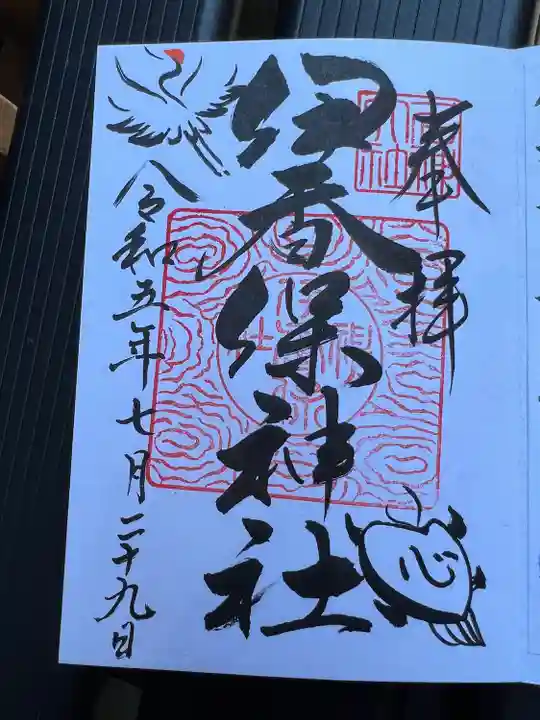 奉拝
伊香保神社
令和五年七月二十九日
心